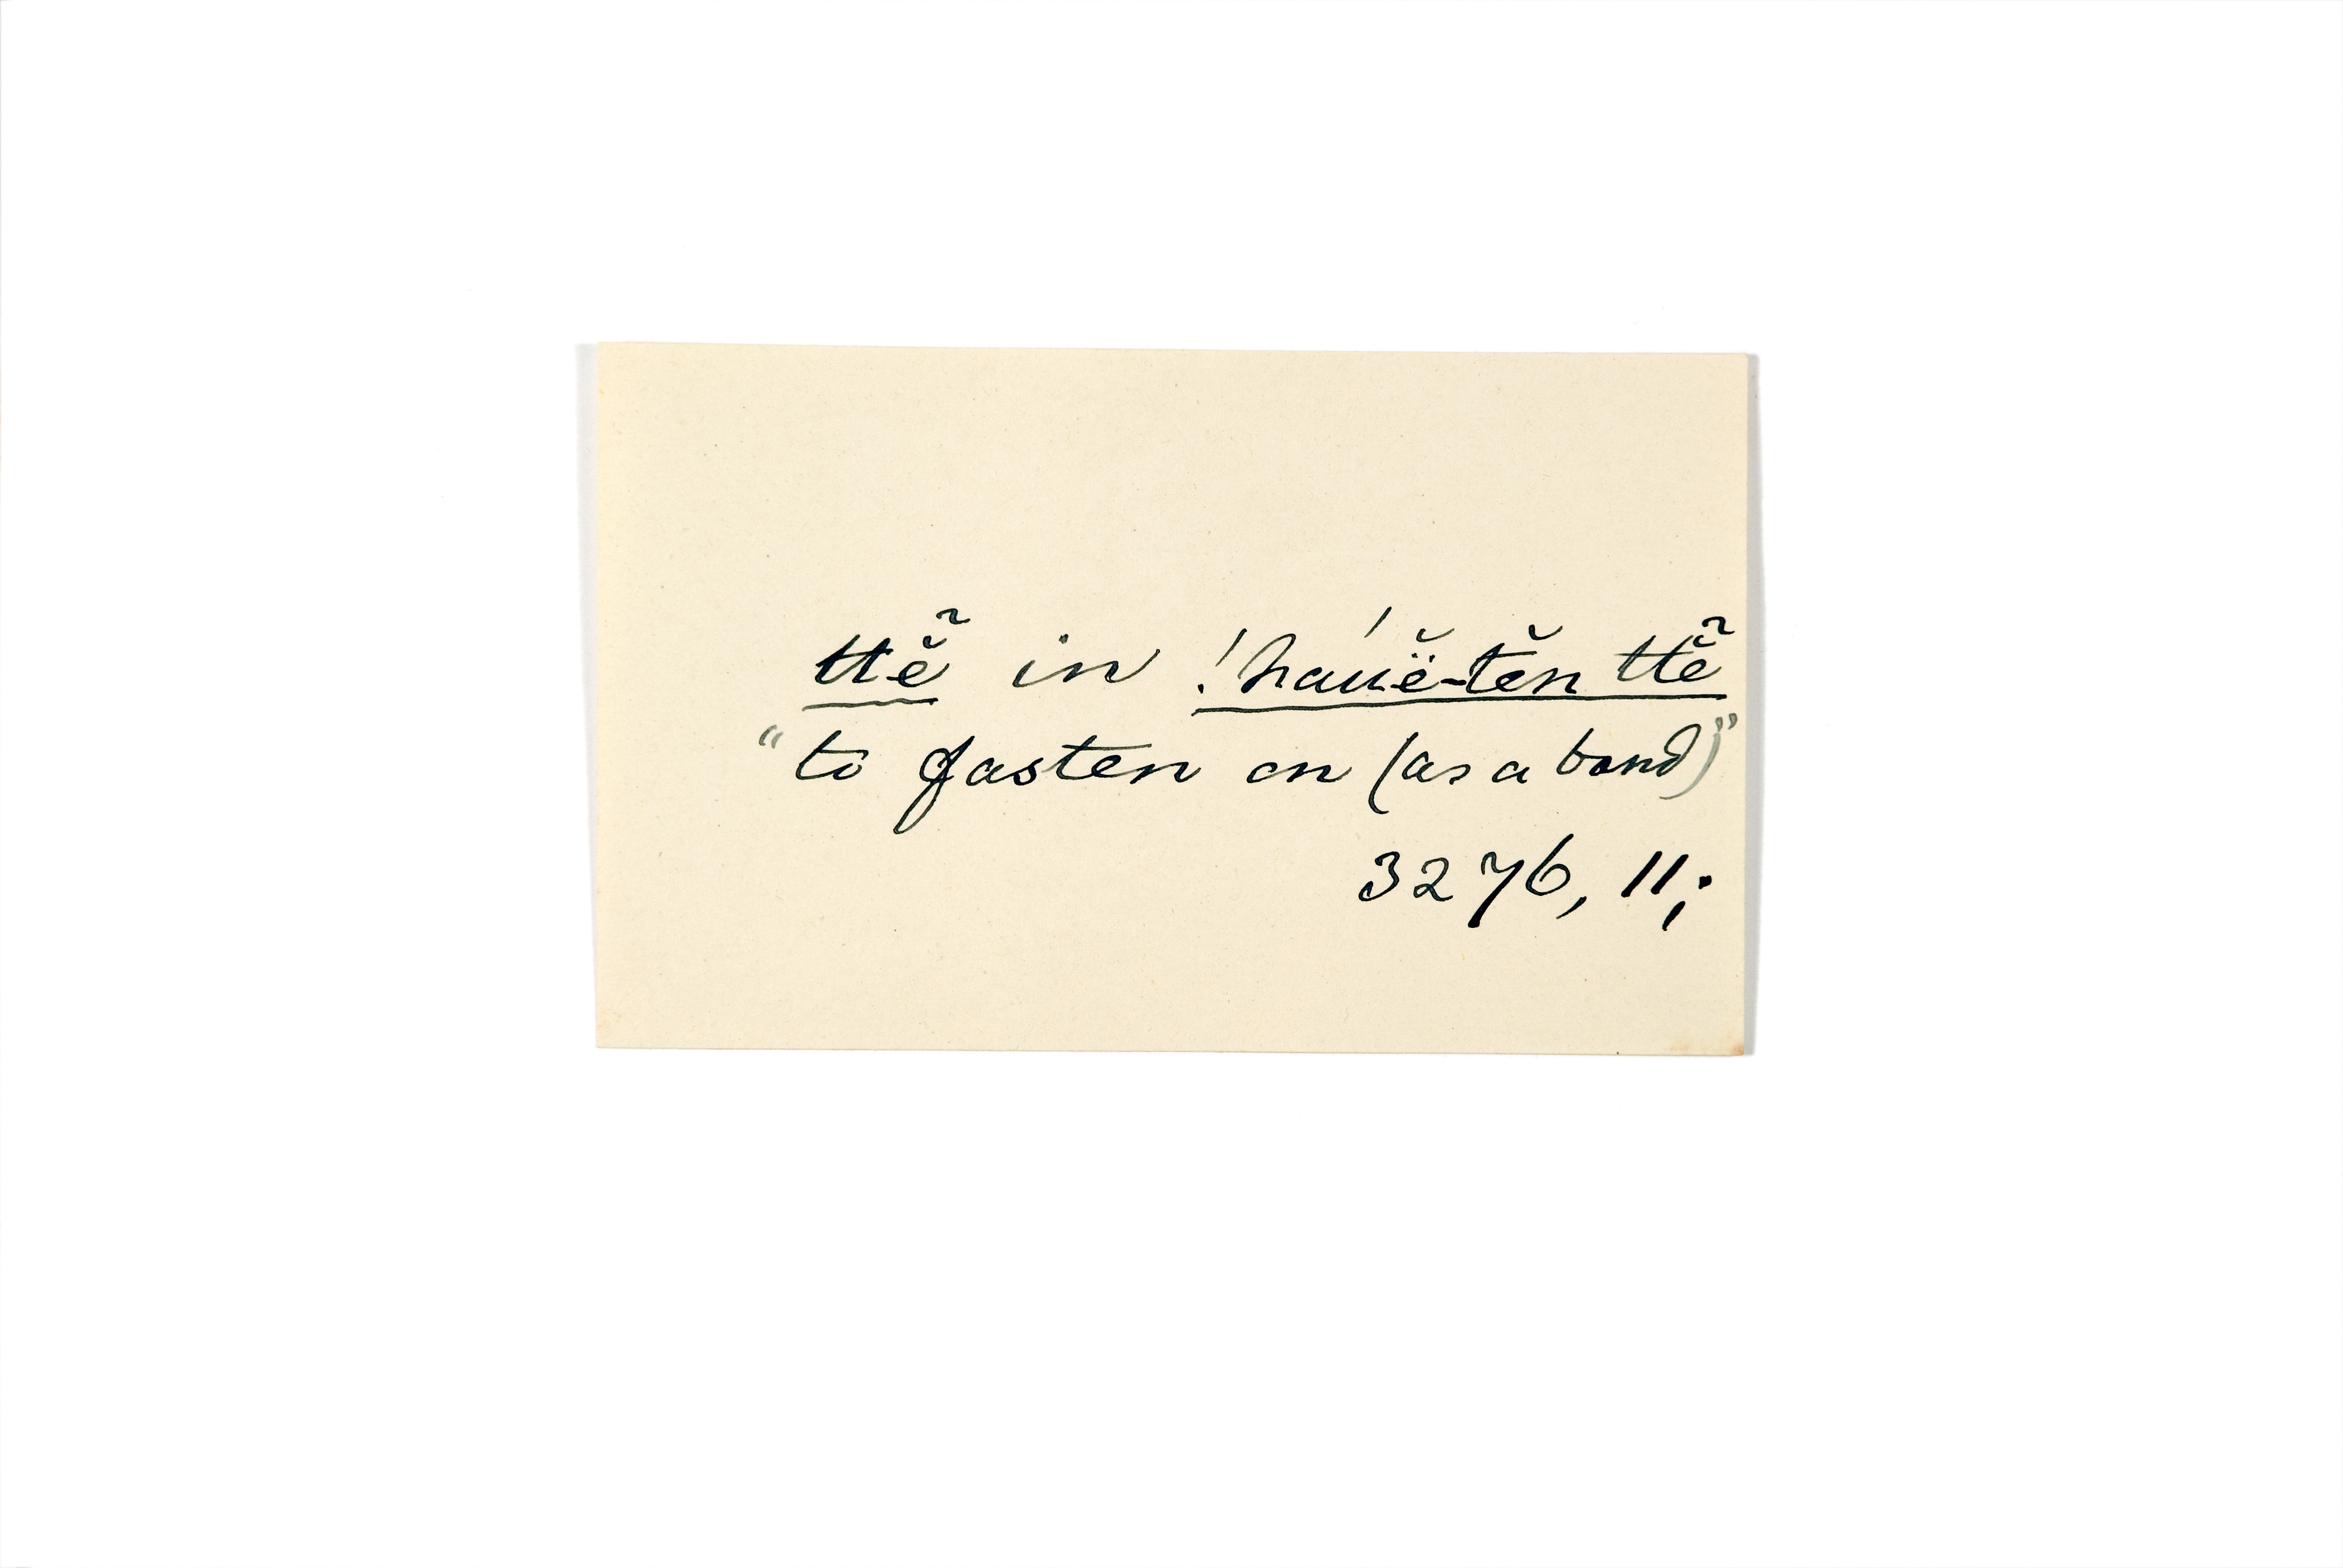 ttĕ̃ in !háu̯ĕ̈-tĕn ttĕ̃
"to fasten on (as a band)"
3276, 11;